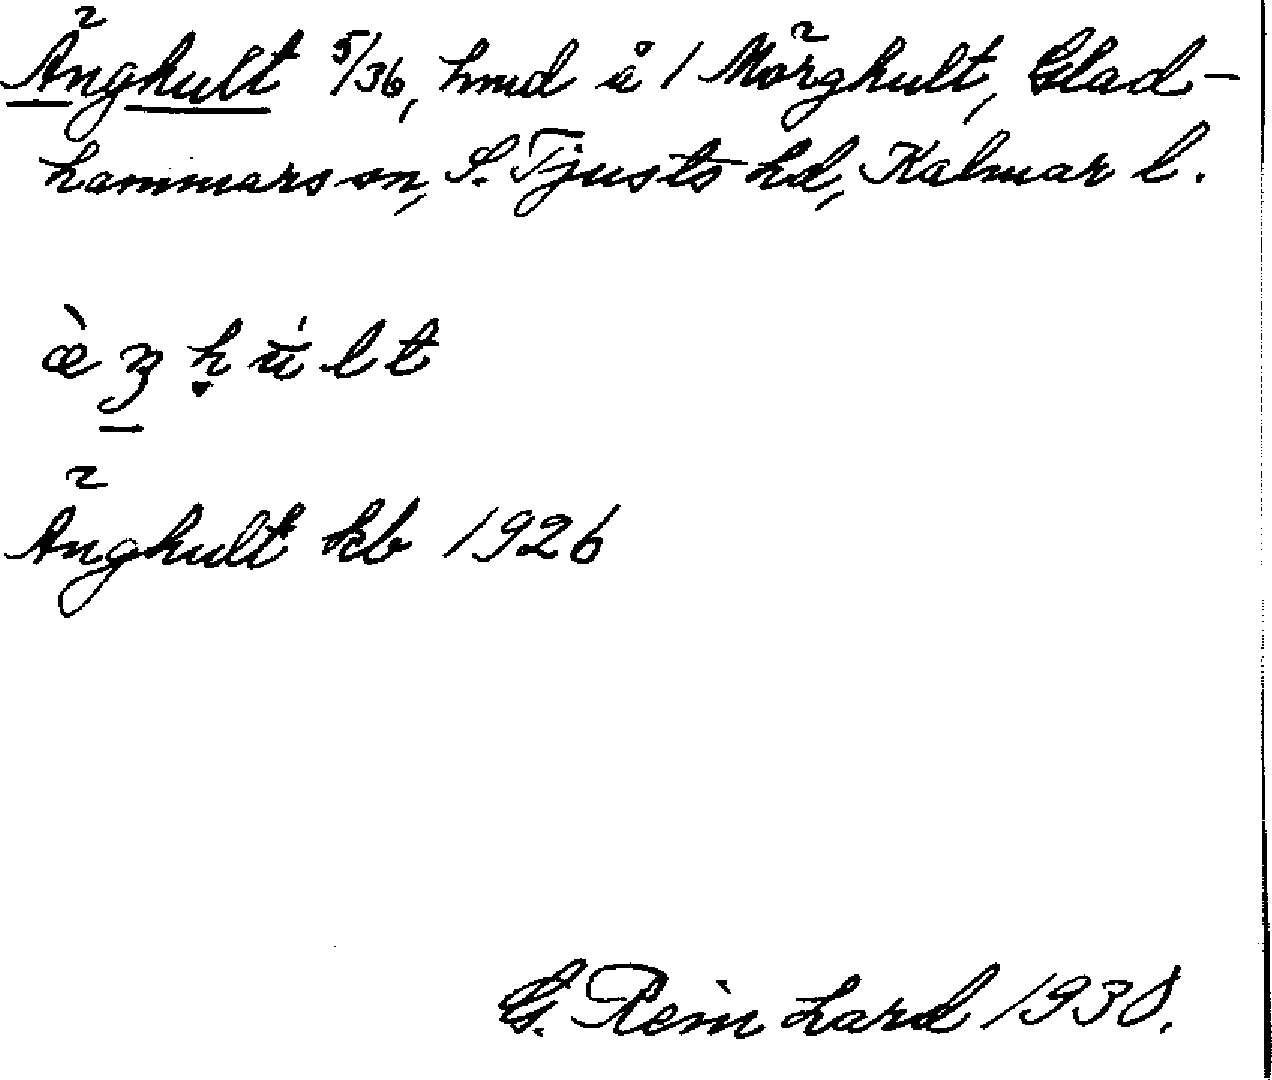 Änghult 5/36, hmd å 1 Mörghult, Glad-
hammars sn, S. Tjusts hd, Kalmar l.
Änghult kb 1926
G. Reinhard 1938.